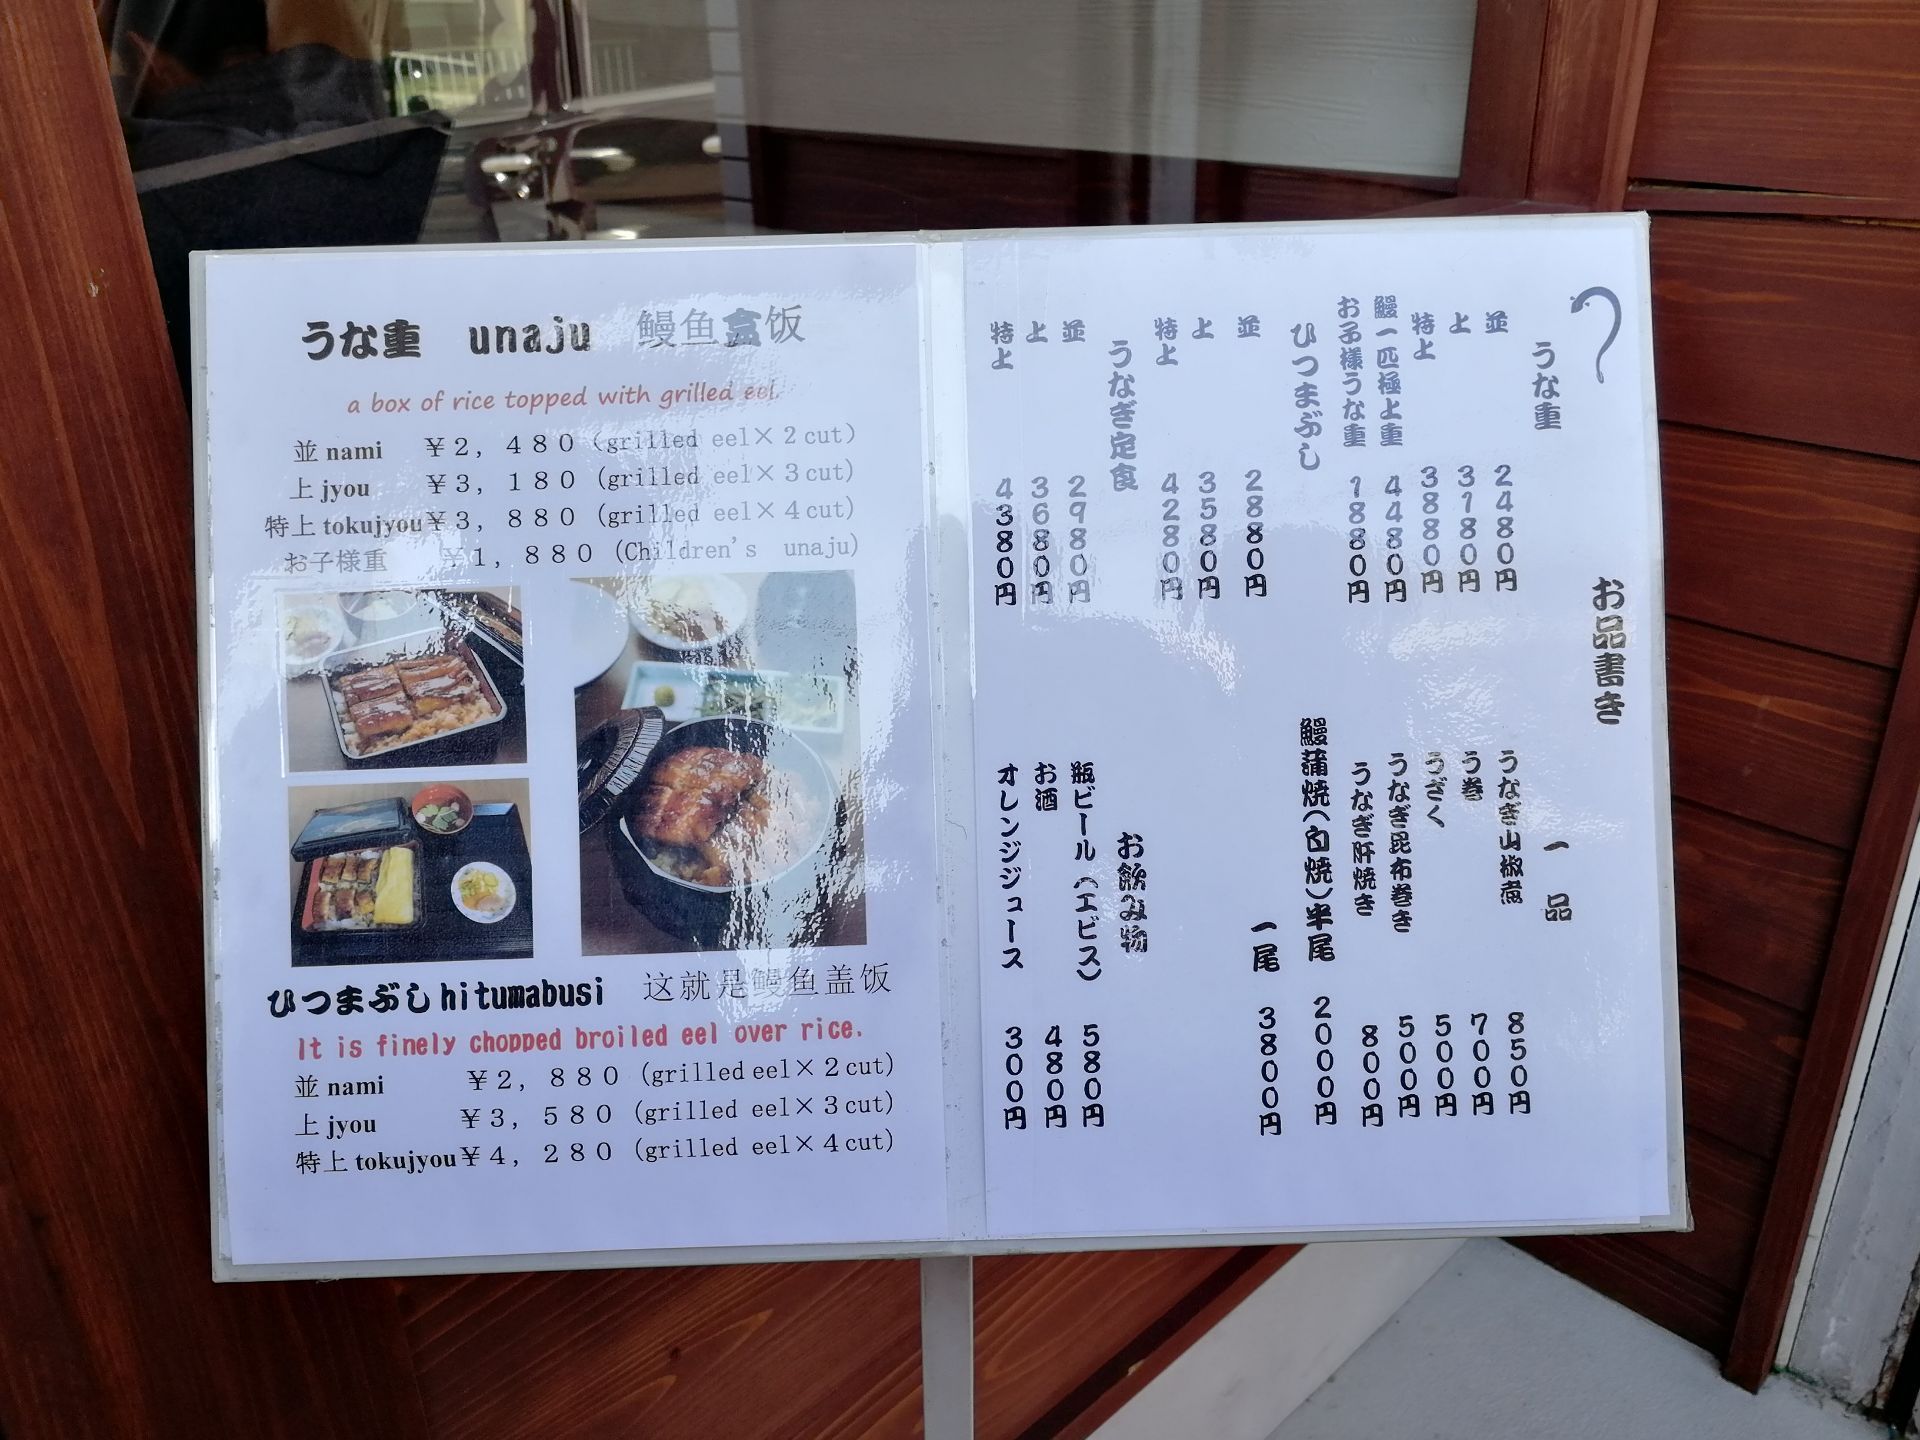 うな重 unaju 鳗鱼盒饭
a box of rice topped with grilled eel.
並 nami ￥２，４８０（grilled eel×２cut）
上 jyou ￥３，１８０（grilled eel×３cut）
特上 tokujyou￥３，８８０（grilled eel×４cut）
お子様重 ￥１，８８０（Children's unaju）
ひつまぶし hitumabusi 这就是鳗鱼盖饭
It is finely chopped broiled eel over rice.
並 nami ￥２，８８０（grilled eel×２cut）
上 jyou ￥３，５８０（grilled eel×３cut）
特上 tokujyou￥４，２８０（grilled eel×４cut）
お品書き
うな重
並 2480円
上 3180円
特上 3880円
鰻一匹極上重 4480円
お子様うな重 1880円
ひつまぶし
並 2880円
上 3580円
特上 4280円
うなぎ定食
並 2980円
上 3680円
特上 4380円
一品
うなぎ山椒煮 850円
う巻 700円
うざく 500円
うなぎ昆布巻き 500円
うなぎ肝焼き 800円
鰻蒲焼（白焼）半尾 2000円
一尾 3800円
お飲み物
瓶ビール（エビス） 580円
お酒 480円
オレンジジュース 300円